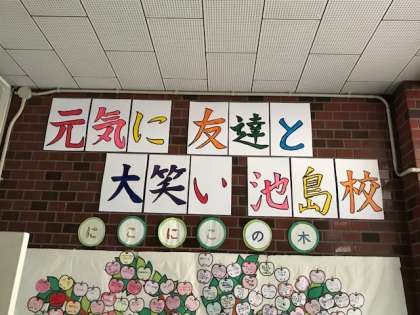 元気に 友達と
大笑い 池島校
にこにこの木